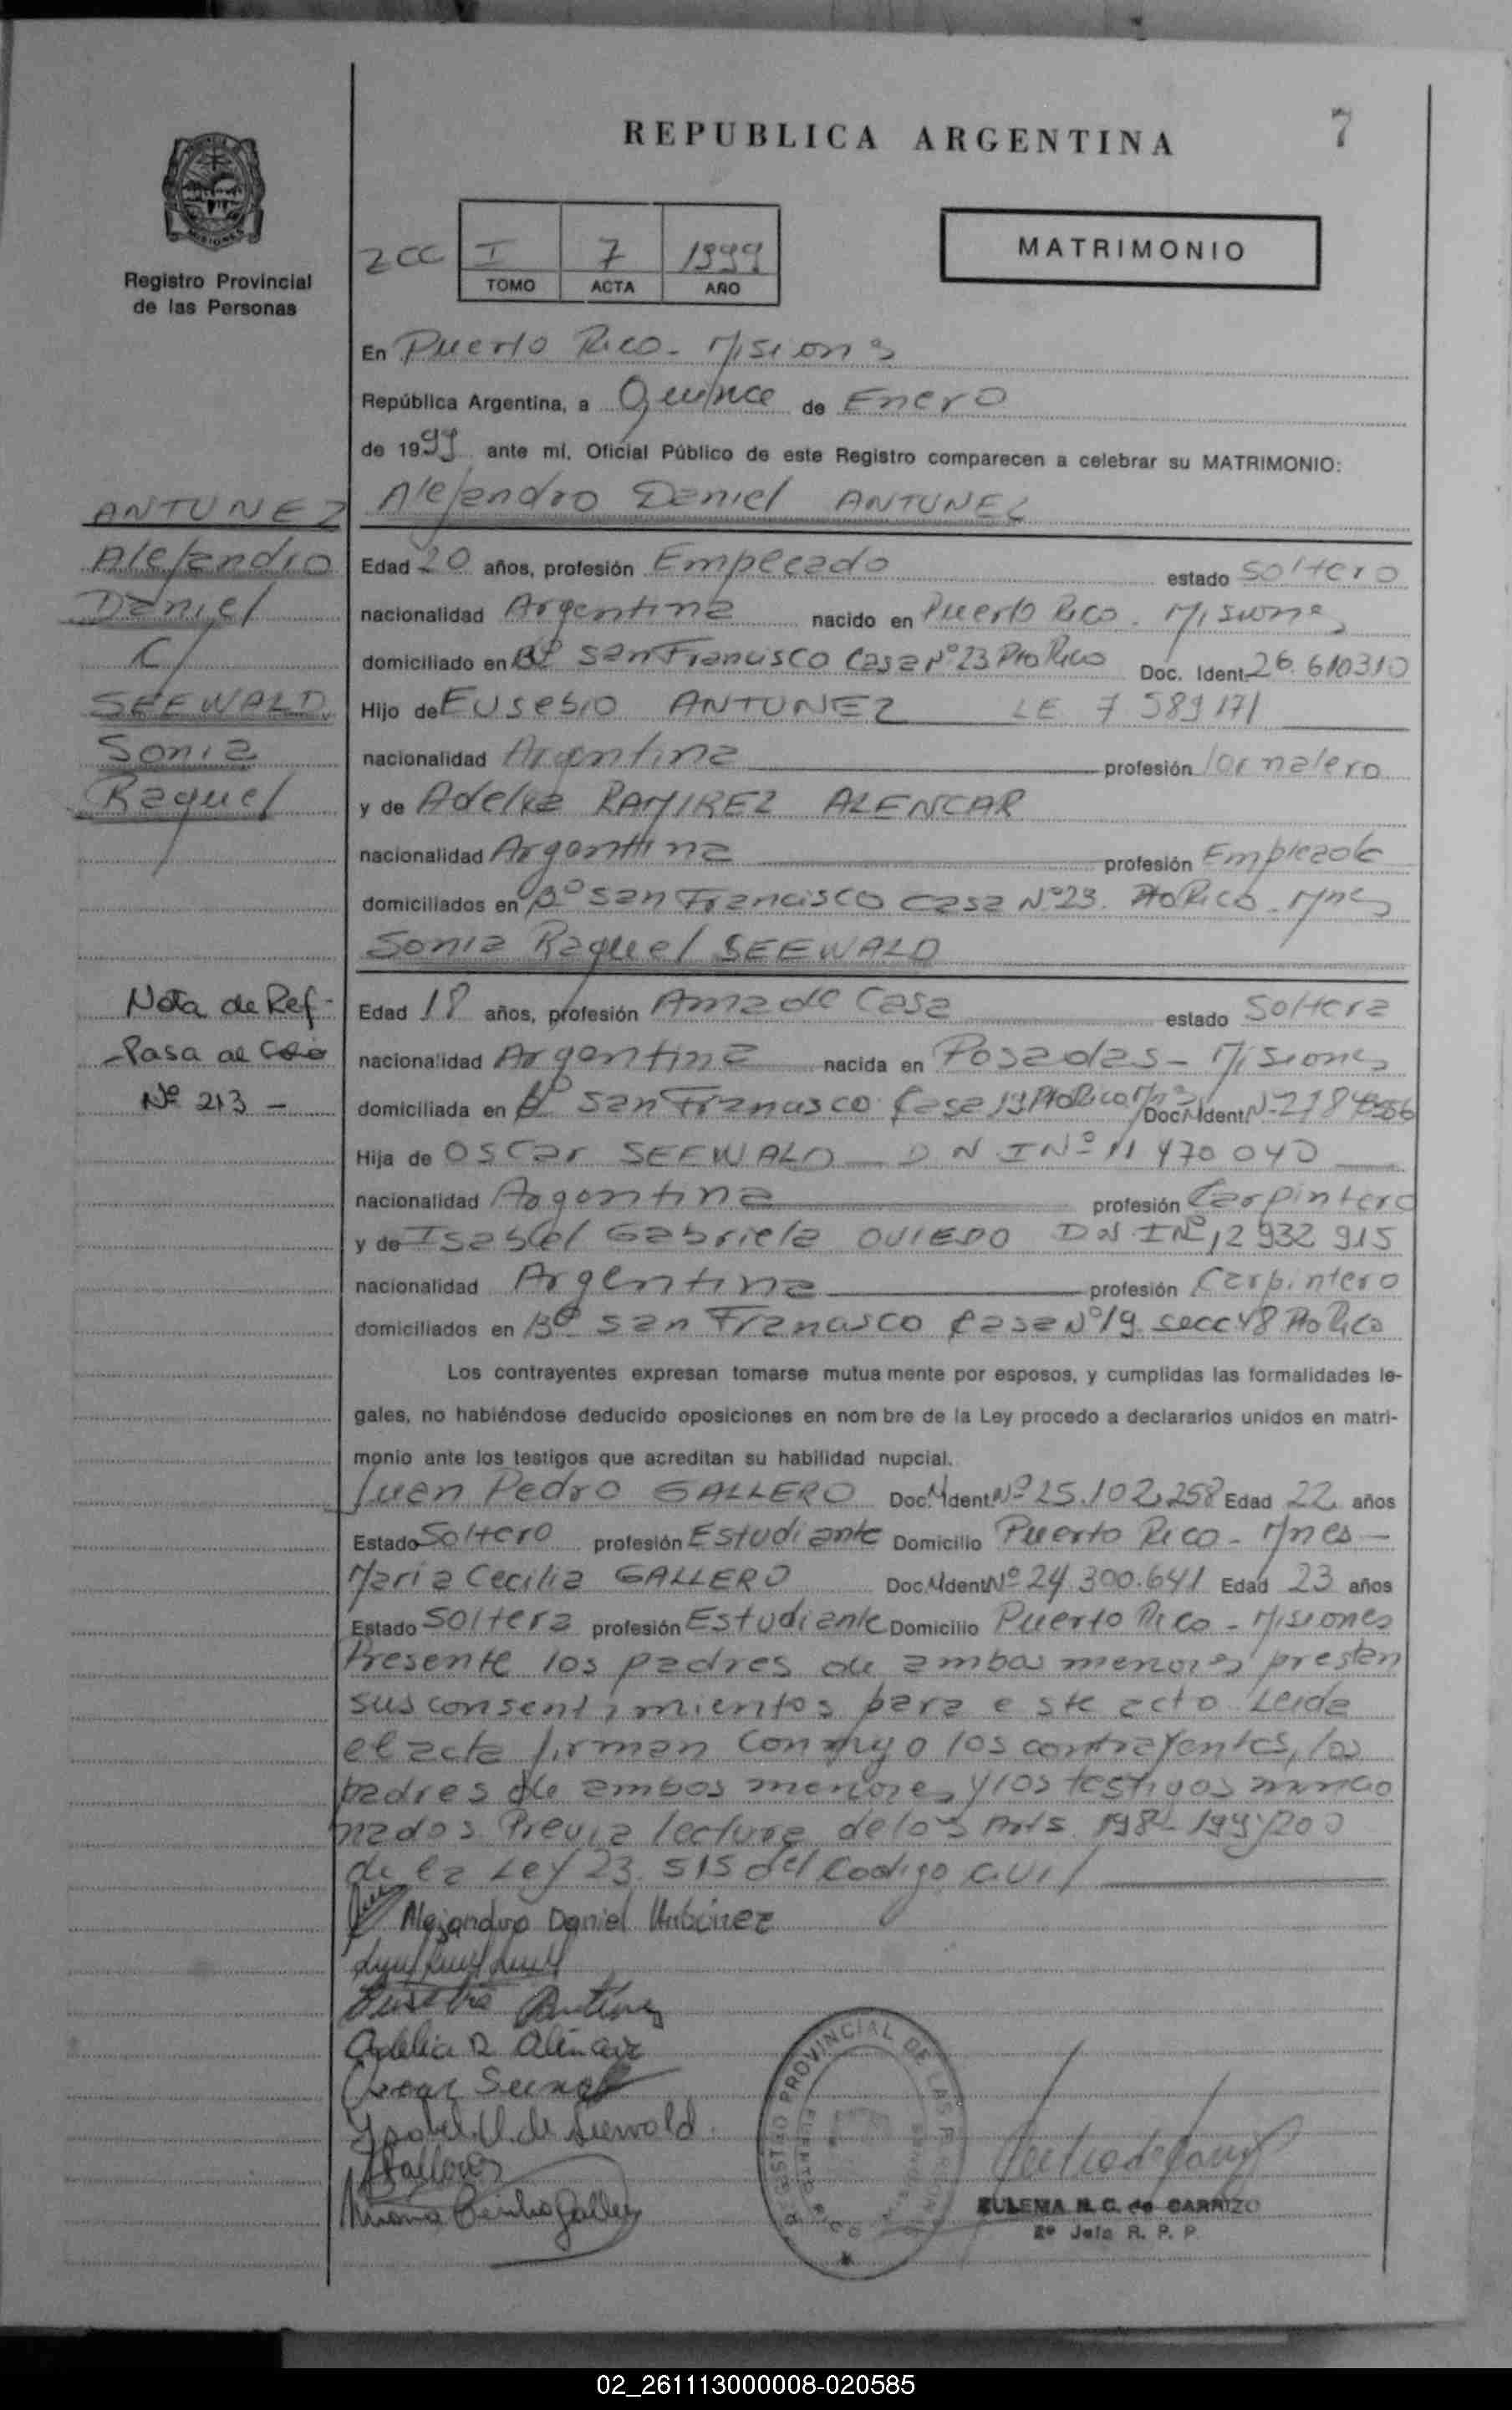 REPUBLICA ARGENTINA
7
MISIONES
Registro Provincial
de las Personas
2CC I 7 1999
TOMO ACTA AÑO
MATRIMONIO
En Puerto Rico - Misiones
República Argentina, a Quince de Enero
de 1999 ante mí, Oficial Público de este Registro comparecen a celebrar su MATRIMONIO:
ANTUNEZ
Alejandro
Daniel
C/
SEEWALD
Sonia
Raquel
Nota de Ref-
-Pasa al
Nº 213 -
Alejandro Daniel ANTUNEZ
Edad 20 años, profesión Empleado estado soltero
nacionalidad Argentina nacido en Puerto Rico - Misiones
domiciliado en Bº San Francisco Casa Nº 23 Pto Rico Doc. Ident. 26.610310
Hijo de Eusebio ANTUNEZ LE 7 589 171
nacionalidad Argentina profesión Jornalero
y de Adelia RAMIREZ ALENCAR
nacionalidad Argentina profesión Empleada
domiciliados en Bº San Francisco Casa Nº 23. Pto Rico - Mnes
Sonia Raquel SEEWALD
Edad 18 años, profesión Ama de Casa estado Soltera
nacionalidad Argentina nacida en Posadas - Misiones
domiciliada en Bº San Francisco Casa 19 Pto Rico Doc. Ident. Nº
Hija de Oscar SEEWALD DNI Nº 11 470 040
nacionalidad Argentina profesión Carpintero
y de Isabel Gabriela OVIEDO DNI Nº 12 932 915
nacionalidad Argentina profesión Carpintero
domiciliados en Bº San Francisco Casa Nº 19 secc 48 Pto Rico
Los contrayentes expresan tomarse mutua mente por esposos, y cumplidas las formalidades le-
gales, no habiéndose deducido oposiciones en nom bre de la Ley procedo a declararlos unidos en matri-
monio ante los testigos que acreditan su habilidad nupcial.
Juan Pedro GALLERO Doc. Ident. Nº 25.102.258 Edad 22 años
Estado Soltero profesión Estudiante Domicilio Puerto Rico - Mnes -
Maria Cecilia GALLERO Doc. Ident. Nº 24.300.641 Edad 23 años
Estado Soltera profesión Estudiante Domicilio Puerto Rico - Misiones
Presente los padres de ambos menores prestan
sus consentimientos para este acto Leida
el acta firman conmigo los contrayentes, los
padres de ambos menores y los testigos mencio
nados Previa lectura de los Arts. 198 - 199/200
de la Ley 23.515 del Codigo Civil
Alejandro Daniel Antúnez
Eusebio Antunez
Adelia R Alencar
Oscar Seewald
Ysabel O. de Seewald.
Gallero
Maria Cecilia Gallero
REGISTRO PROVINCIAL DE LAS PERSONAS
PUERTO RICO
ZULEMA N. C. de CARRIZO
2º Jefe R. P. P.
02_261113000008-020585